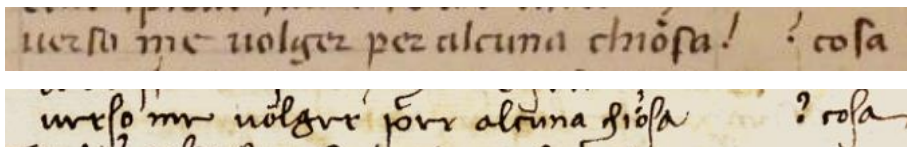 uerso me uolger per alcuna chiosa! ? cosa
uerso me uolger per alcuna chiosa ? cosa